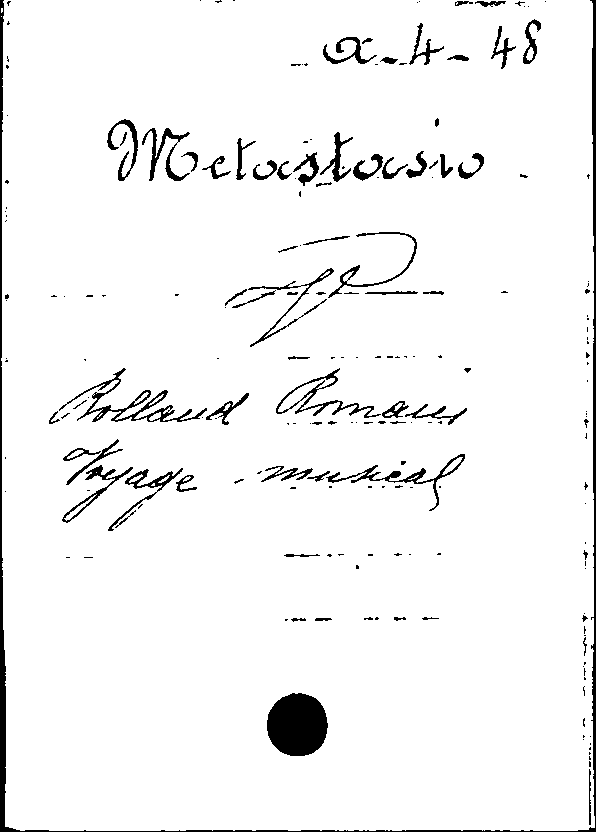 a-4-48
Metastasio
Rolland Romain
Voyage musical